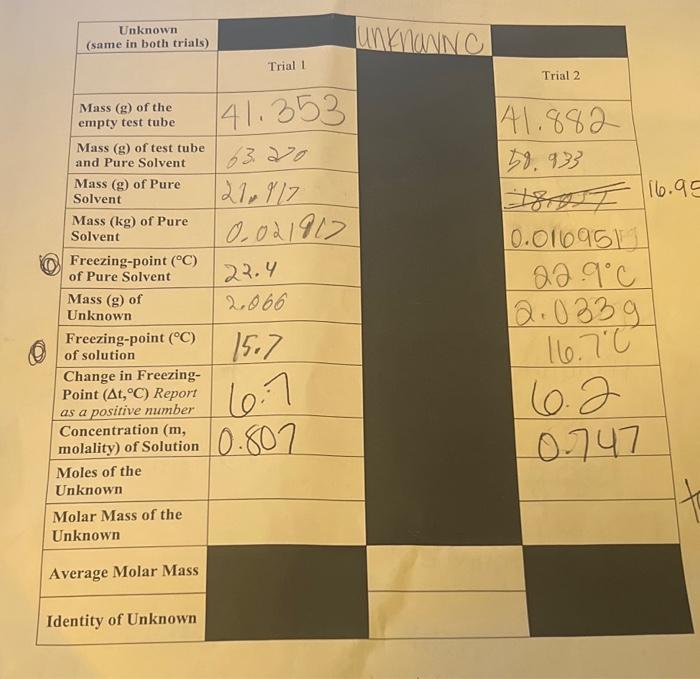 Unknown
(same in both trials)
unknown C
Trial 1
Trial 2
Mass (g) of the
empty test tube
41.353
41.882
Mass (g) of test tube
and Pure Solvent
63.270
58.933
Mass (g) of Pure
Solvent
21.917
16.95
Mass (kg) of Pure
Solvent
0.021917
0.016951
Freezing-point (°C)
of Pure Solvent
22.4
22.9°C
Mass (g) of
Unknown
2.066
2.033g
Freezing-point (°C)
of solution
15.7
16.7°C
Change in Freezing-
Point (Δt,°C) Report
as a positive number
6.7
6.2
Concentration (m,
molality) of Solution
0.807
0.747
Moles of the
Unknown
Molar Mass of the
Unknown
Average Molar Mass
Identity of Unknown